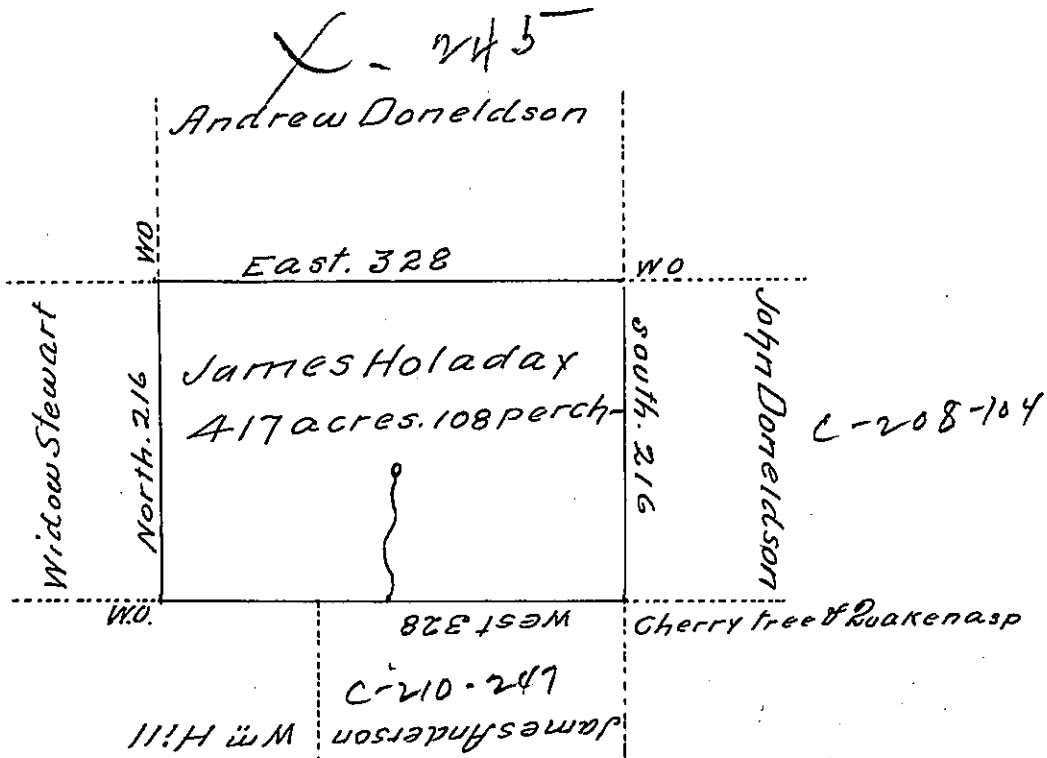 X - 245
Andrew Doneldson
WO
East. 328
WO
Widow Stewart
North. 216
James Holaday
417 acres. 108 perch-
South. 216
John Doneldson
C-208-104
W.O.
West 328
Cherry tree & Quakenasp
C-210-247
James Anderson
Wm Hill